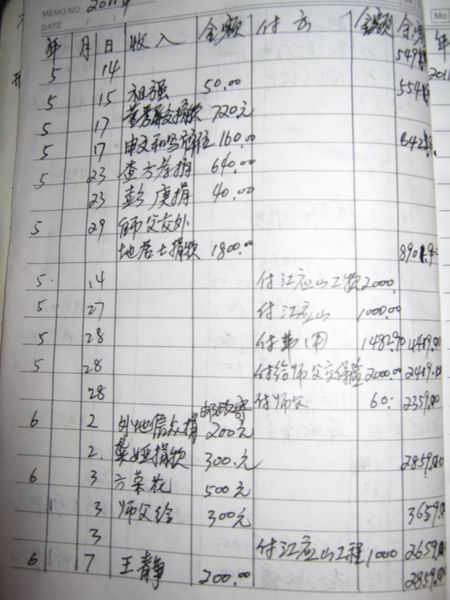 MEMO NO. 2011年
DATE / /
年 月 日 收入 金额 付出 金额 余额
5 14 549
5 15 祖强 50.00 554
捐款 720元
5 17
5 17 160.00 642
5 23 查方孝捐 640.00
23 彭庚捐 40.00
5 29 师父交外
地居士捐款 1800.00 890
5 14 付江应山工款 2000.
5 27 付江应山 1000.00
5 28 付费用 1482.90 4419.00
5 28 付给师父交保益 2000.00 2419.00
28 付师父 60. 2359.00
邮政寄
6 2 外地信众捐 200元
2 娅捐款 300.元 2859.00
6 3 六菜花 500元
3 师父给 300元 3659.00
3 付江应山工程 1000 2659.00
6 7 王静 200.00 2859.00